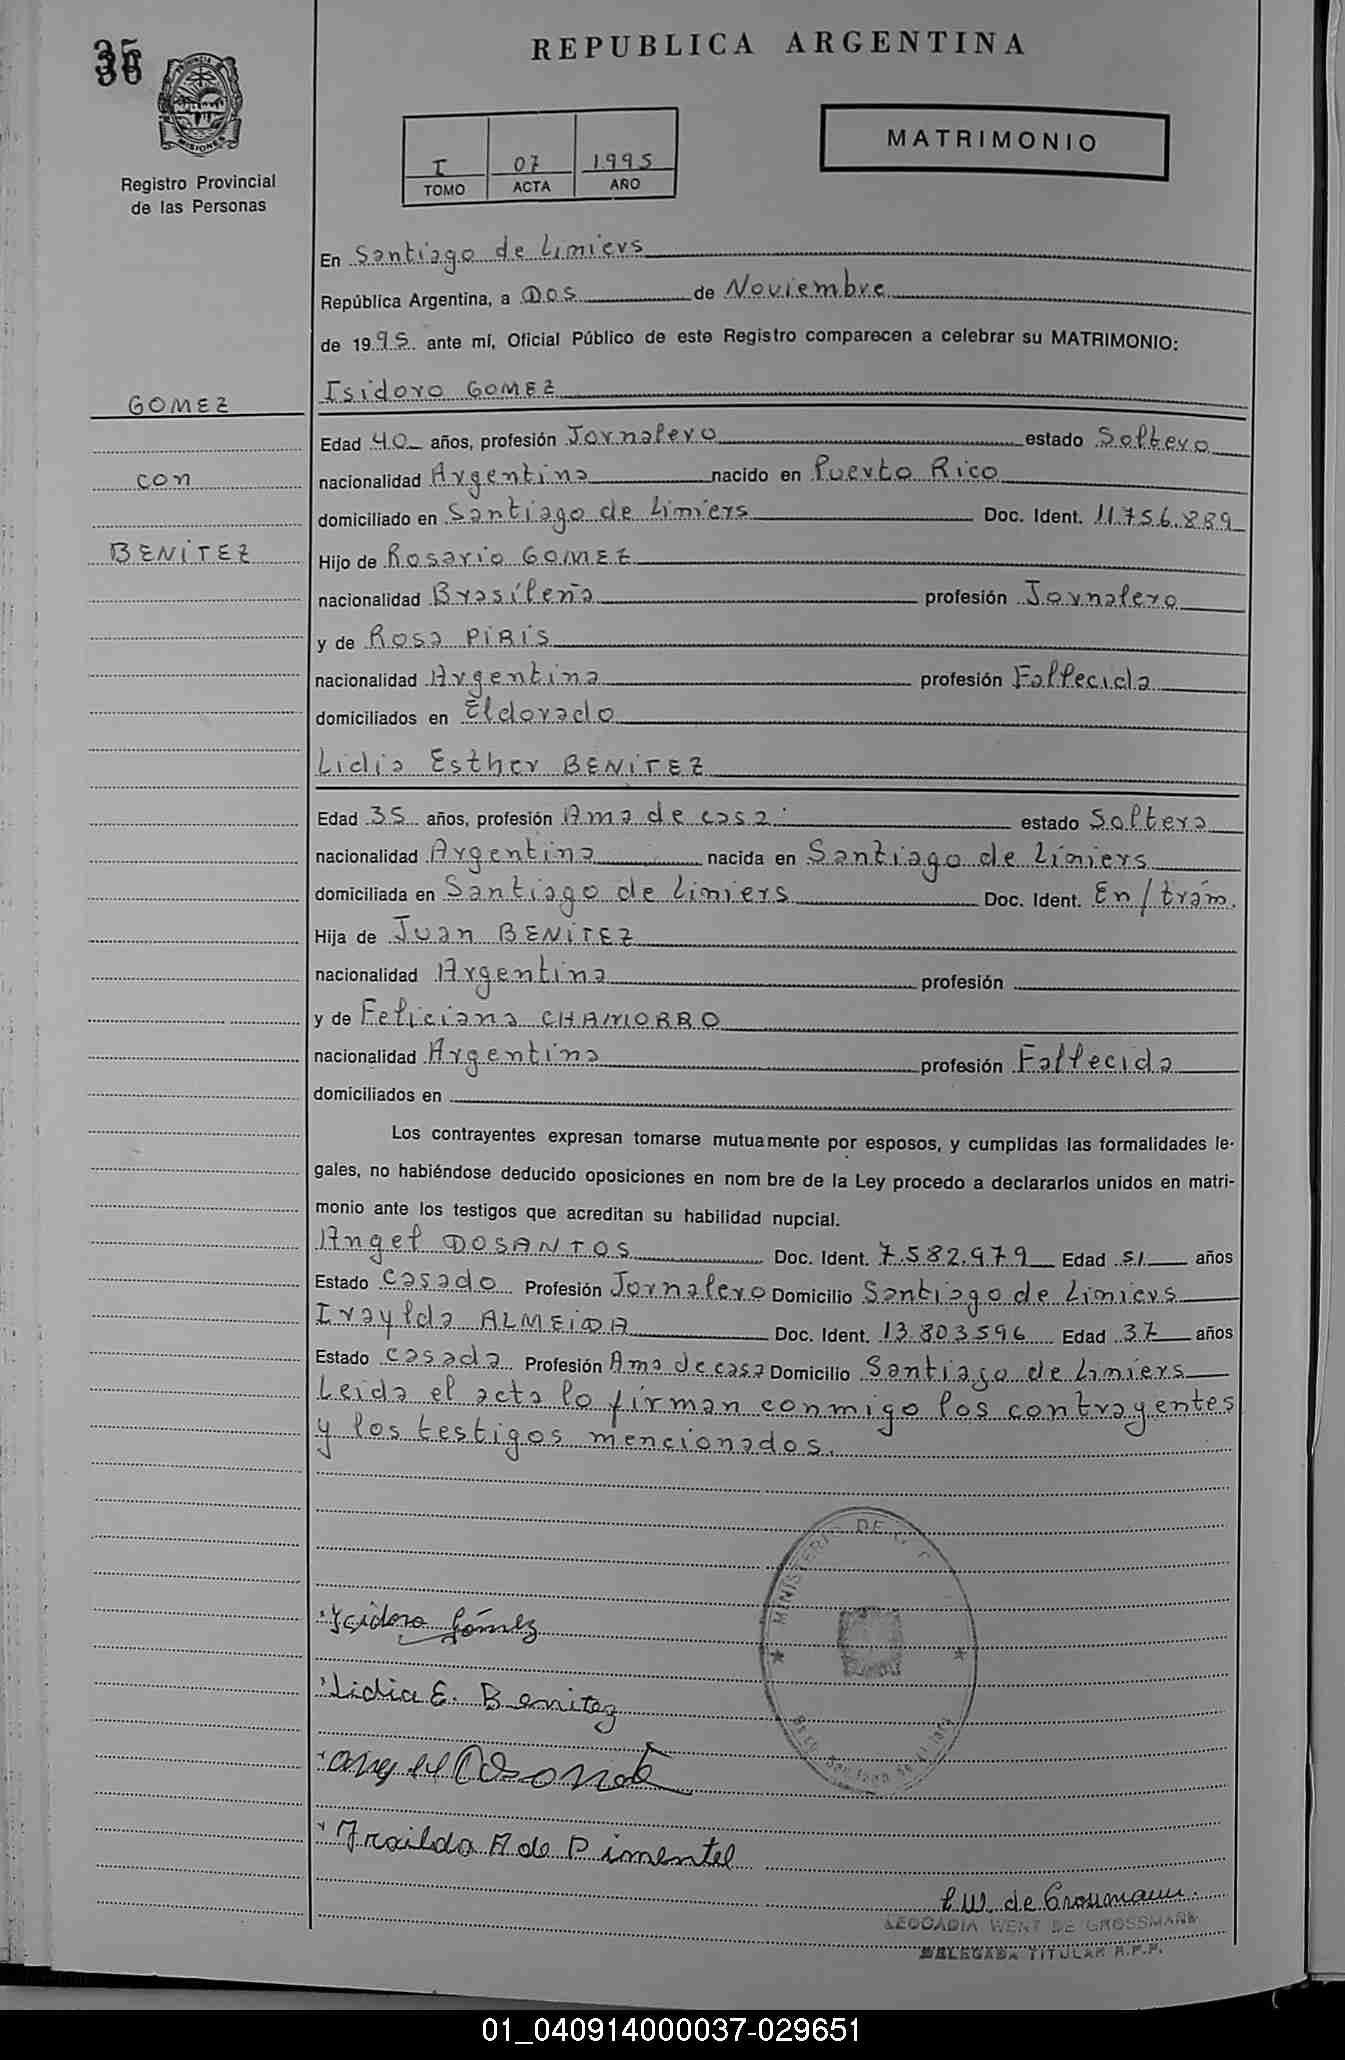 REPUBLICA ARGENTINA
36
MISIONES
Registro Provincial
de las Personas
I 07 1995
TOMO ACTA AÑO
MATRIMONIO
En Santiago de Liniers
República Argentina, a Dos de Noviembre
de 1995 ante mí, Oficial Público de este Registro comparecen a celebrar su MATRIMONIO:
GOMEZ
con
BENITEZ
Isidoro GOMEZ
Edad 40 años, profesión Jornalero estado Soltero
nacionalidad Argentina nacido en Puerto Rico
domiciliado en Santiago de Liniers Doc. Ident. 11.756.889
Hijo de Rosario GOMEZ
nacionalidad Brasileña profesión Jornalero
y de Rosa PIRIS
nacionalidad Argentina profesión Fallecida
domiciliados en Eldorado
Lidia Esther BENITEZ
Edad 35 años, profesión Ama de casa estado Soltera
nacionalidad Argentina nacida en Santiago de Liniers
domiciliada en Santiago de Liniers Doc. Ident. En/trám.
Hija de Juan BENITEZ
nacionalidad Argentina profesión
y de Feliciana CHAMORRO
nacionalidad Argentina profesión Fallecida
domiciliados en
Los contrayentes expresan tomarse mutuamente por esposos, y cumplidas las formalidades le-
gales, no habiéndose deducido oposiciones en nom bre de la Ley procedo a declararlos unidos en matri-
monio ante los testigos que acreditan su habilidad nupcial.
Angel DOSANTOS Doc. Ident. 7.582.979 Edad 51 años
Estado casado Profesión Jornalero Domicilio Santiago de Liniers
Iraylda ALMEIDA Doc. Ident. 13.803.596 Edad 37 años
Estado casada Profesión Ama de casa Domicilio Santiago de Liniers
Leida el acta lo firman conmigo los contrayentes
y los testigos mencionados.
MINISTERIO DE
Isidoro Gómez
Lidia E. Benitez
Irailda A de Pimentel
L W. de Grossmann.
LEOCADIA WENT DE GROSSMANN
DELEGADA TITULAR R.P.P.
01_040914000037-029651